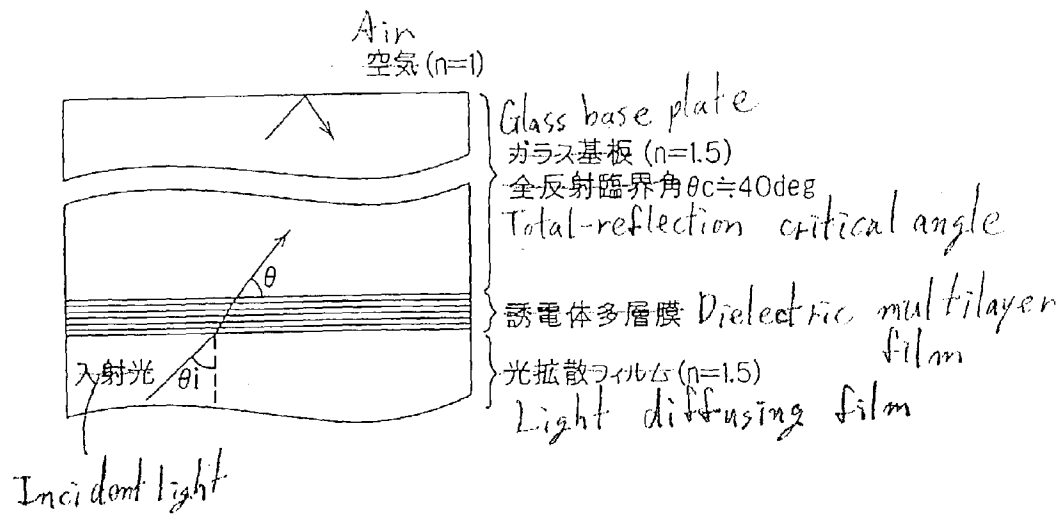 Air
空気 (n=1)
Glass base plate
ガラス基板 (n=1.5)
全反射臨界角θc≒40deg
Total-reflection critical angle
θ
誘電体多層膜 Dielectric multilayer
film
入射光
θi
光拡散フィルム (n=1.5)
Light diffusing film
Incident light